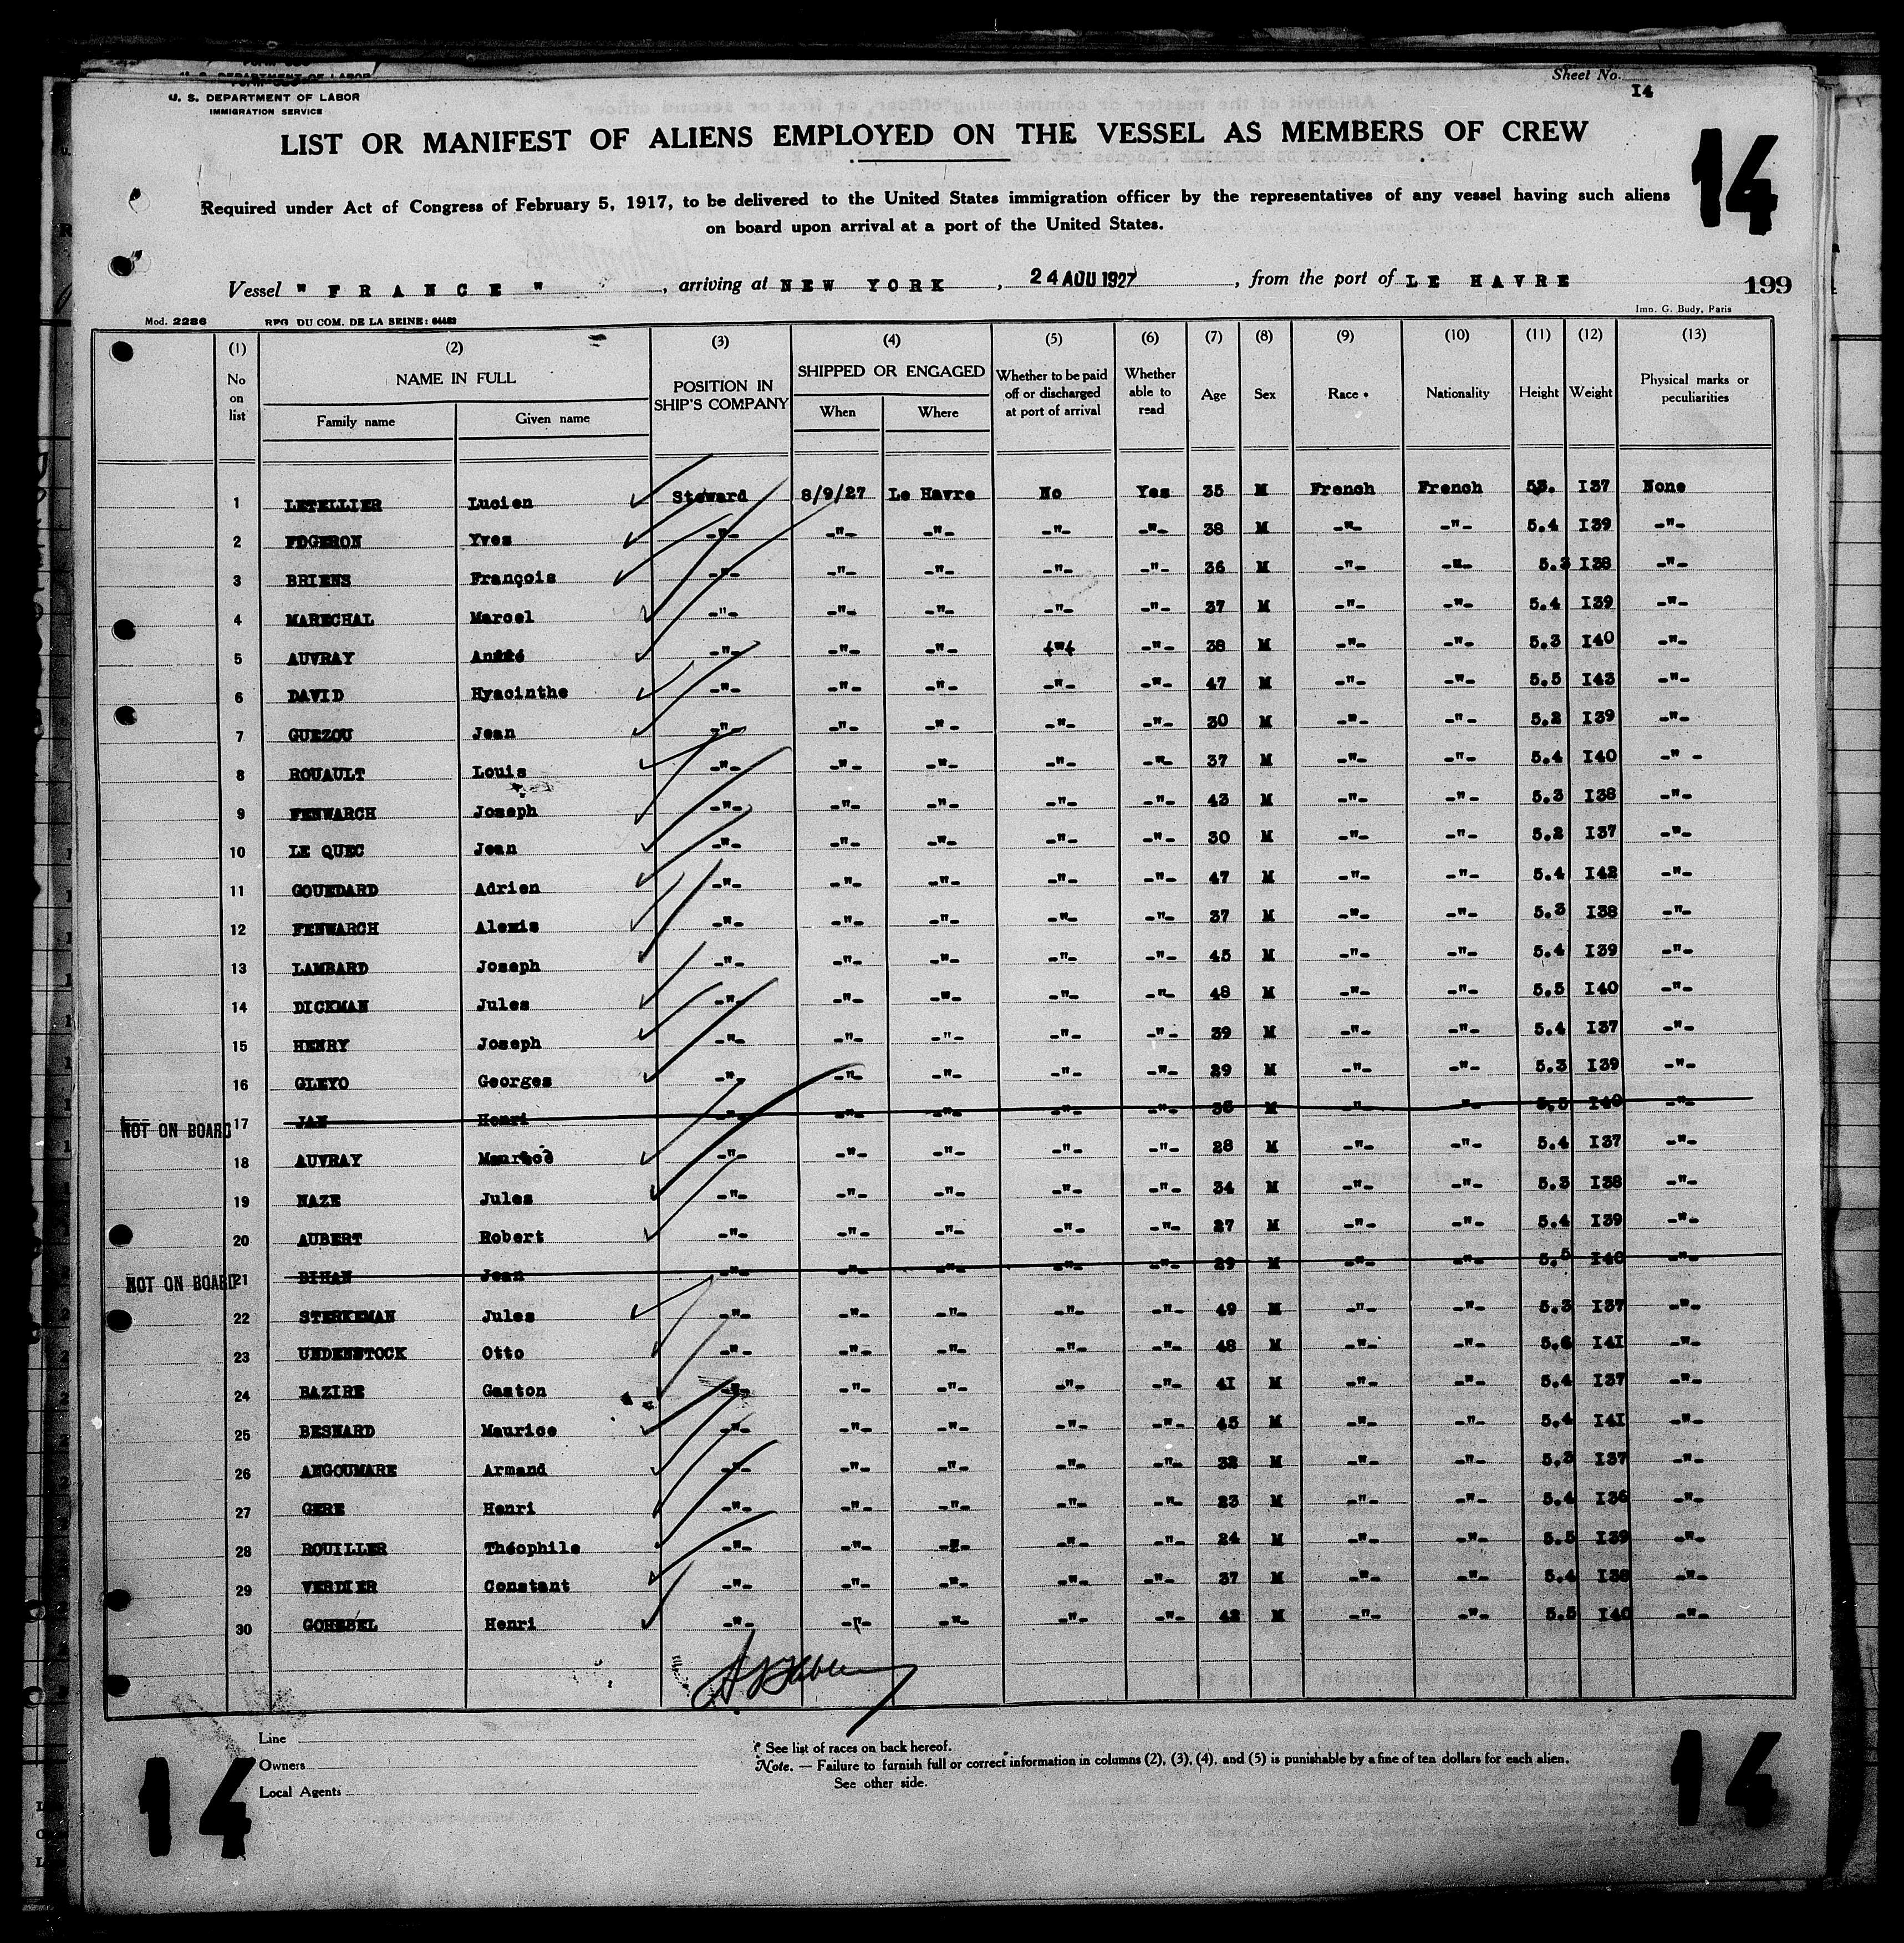 Sheet No. 14
U. S. DEPARTMENT OF LABOR
IMMIGRATION SERVICE
LIST OR MANIFEST OF ALIENS EMPLOYED ON THE VESSEL AS MEMBERS OF CREW
14
Required under Act of Congress of February 5, 1917, to be delivered to the United States immigration officer by the representatives of any vessel having such aliens
on board upon arrival at a port of the United States.
Vessel "FRANCE", arriving at NEW YORK, 24 AOU 1927, from the port of LE HAVRE 199
Mod. 2286 REG. DU COM. DE LA SEINE: Imp. G. Budy, Paris
(1) (2) (3) (4) (5) (6) (7) (8) (9) (10) (11) (12) (13)
No on list NAME IN FULL Family name Given name POSITION IN SHIP'S COMPANY SHIPPED OR ENGAGED When Where Whether to be paid off or discharged at port of arrival Whether able to read Age Sex Race * Nationality Height Weight Physical marks or peculiarities
1 LETELLIER Lucien Steward 8/9/27 Le Havre No Yes 35 M French French 53. I37 None
2 FDGERON Yves -"- -"- -"- -"- -"- 38 M -"- -"- 5.4 I39 -"-
3 BRIENS François -"- -"- -"- -"- -"- 36 M -"- -"- 5.3 I38 -"-
4 MARECHAL Marcel -"- -"- -"- -"- -"- 37 M -"- -"- 5.4 I39 -"-
5 AUVRAY André -"- -"- -"- -"- -"- 38 M -"- -"- 5.3 I40 -"-
6 DAVID Hyacinthe -"- -"- -"- -"- -"- 47 M -"- -"- 5.5 I43 -"-
7 GUEZOU Jean -"- -"- -"- -"- -"- 30 M -"- -"- 5.2 I39 -"-
8 ROUAULT Louis -"- -"- -"- -"- -"- 37 M -"- -"- 5.4 I40 -"-
9 FENWARCH Joseph -"- -"- -"- -"- -"- 43 M -"- -"- 5.3 I38 -"-
10 LE QUEC Jean -"- -"- -"- -"- -"- 30 M -"- -"- 5.2 I37 -"-
11 GOUEDARD Adrien -"- -"- -"- -"- -"- 47 M -"- -"- 5.4 I42 -"-
12 FENWARCH Alexis -"- -"- -"- -"- -"- 37 M -"- -"- 5.3 I38 -"-
13 LAMBARD Joseph -"- -"- -"- -"- -"- 45 M -"- -"- 5.4 I39 -"-
14 DICKMAN Jules -"- -"- -"- -"- -"- 48 M -"- -"- 5.5 I40 -"-
15 HENRY Joseph -"- -"- -"- -"- -"- 39 M -"- -"- 5.4 I37 -"-
16 GLEYO Georges -"- -"- -"- -"- -"- 29 M -"- -"- 5.3 I39 -"-
NOT ON BOARD 17 JAN Henri -"- -"- -"- -"- -"- 36 M -"- -"- 5.5 I40 -"-
18 AUVRAY Maurice -"- -"- -"- -"- -"- 28 M -"- -"- 5.4 I37 -"-
19 NAZE Jules -"- -"- -"- -"- -"- 34 M -"- -"- 5.3 I38 -"-
20 AUBERT Robert -"- -"- -"- -"- -"- 27 M -"- -"- 5.4 I39 -"-
NOT ON BOARD 21 BIHAN Jean -"- -"- -"- -"- -"- 29 M -"- -"- 5.5 I40 -"-
22 STERKEMAN Jules -"- -"- -"- -"- -"- 49 M -"- -"- 5.3 I37 -"-
23 UNDENSTOCK Otto -"- -"- -"- -"- -"- 48 M -"- -"- 5.6 I4I -"-
24 BAZIRE Gaston -"- -"- -"- -"- -"- 4I M -"- -"- 5.4 I37 -"-
25 BESNARD Maurice -"- -"- -"- -"- -"- 45 M -"- -"- 5.4 I4I -"-
26 ANGOUMARE Armand -"- -"- -"- -"- -"- 32 M -"- -"- 5.3 I37 -"-
27 GERE Henri -"- -"- -"- -"- -"- 23 M -"- -"- 5.4 I36 -"-
28 ROUILLER Théophile -"- -"- -"- -"- -"- 24 M -"- -"- 5.5 I39 -"-
29 VERDIER Constant -"- -"- -"- -"- -"- 37 M -"- -"- 5.4 I38 -"-
30 GOHEBEL Henri -"- -"- -"- -"- -"- 42 M -"- -"- 5.5 I40 -"-
Line
Owners
Local Agents
* See list of races on back hereof.
Note. — Failure to furnish full or correct information in columns (2), (3), (4), and (5) is punishable by a fine of ten dollars for each alien.
See other side.
14 14